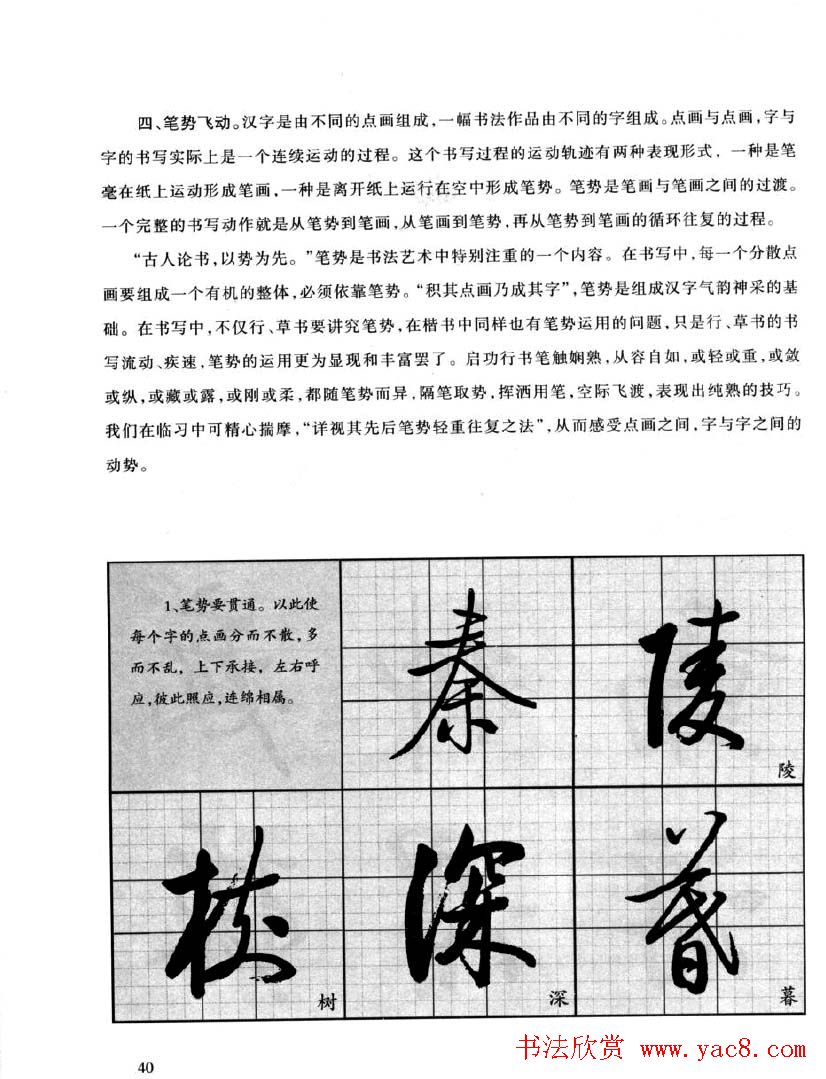 四、笔势飞动。汉字是由不同的点画组成,一幅书法作品由不同的字组成。点画与点画,字与
字的书写实际上是一个连续运动的过程。这个书写过程的运动轨迹有两种表现形式,一种是笔
毫在纸上运动形成笔画,一种是离开纸上运行在空中形成笔势。笔势是笔画与笔画之间的过渡。
一个完整的书写动作就是从笔势到笔画,从笔画到笔势,再从笔势到笔画的循环往复的过程。
“古人论书,以势为先。”笔势是书法艺术中特别注重的一个内容。在书写中,每一个分散点
画要组成一个有机的整体,必须依靠笔势。“积其点画乃成其字”,笔势是组成汉字气韵神采的基
础。在书写中,不仅行、草书要讲究笔势,在楷书中同样也有笔势运用的问题,只是行、草书的书
写流动、疾速,笔势的运用更为显现和丰富罢了。启功行书笔触娴熟,从容自如,或轻或重,或敛
或纵,或藏或露,或刚或柔,都随笔势而异,隔笔取势,挥洒用笔,空际飞渡,表现出纯熟的技巧。
我们在临习中可精心揣摩,“详视其先后笔势轻重往复之法”,从而感受点画之间,字与字之间的
动势。
1、笔势要贯通。以此使
每个字的点画分而不散,多
而不乱,上下承接,左右呼
应,彼此照应,连绵相属。
秦
陵
陵
树
树
深
深
暮
暮
40
书法欣赏 www.yac8.com